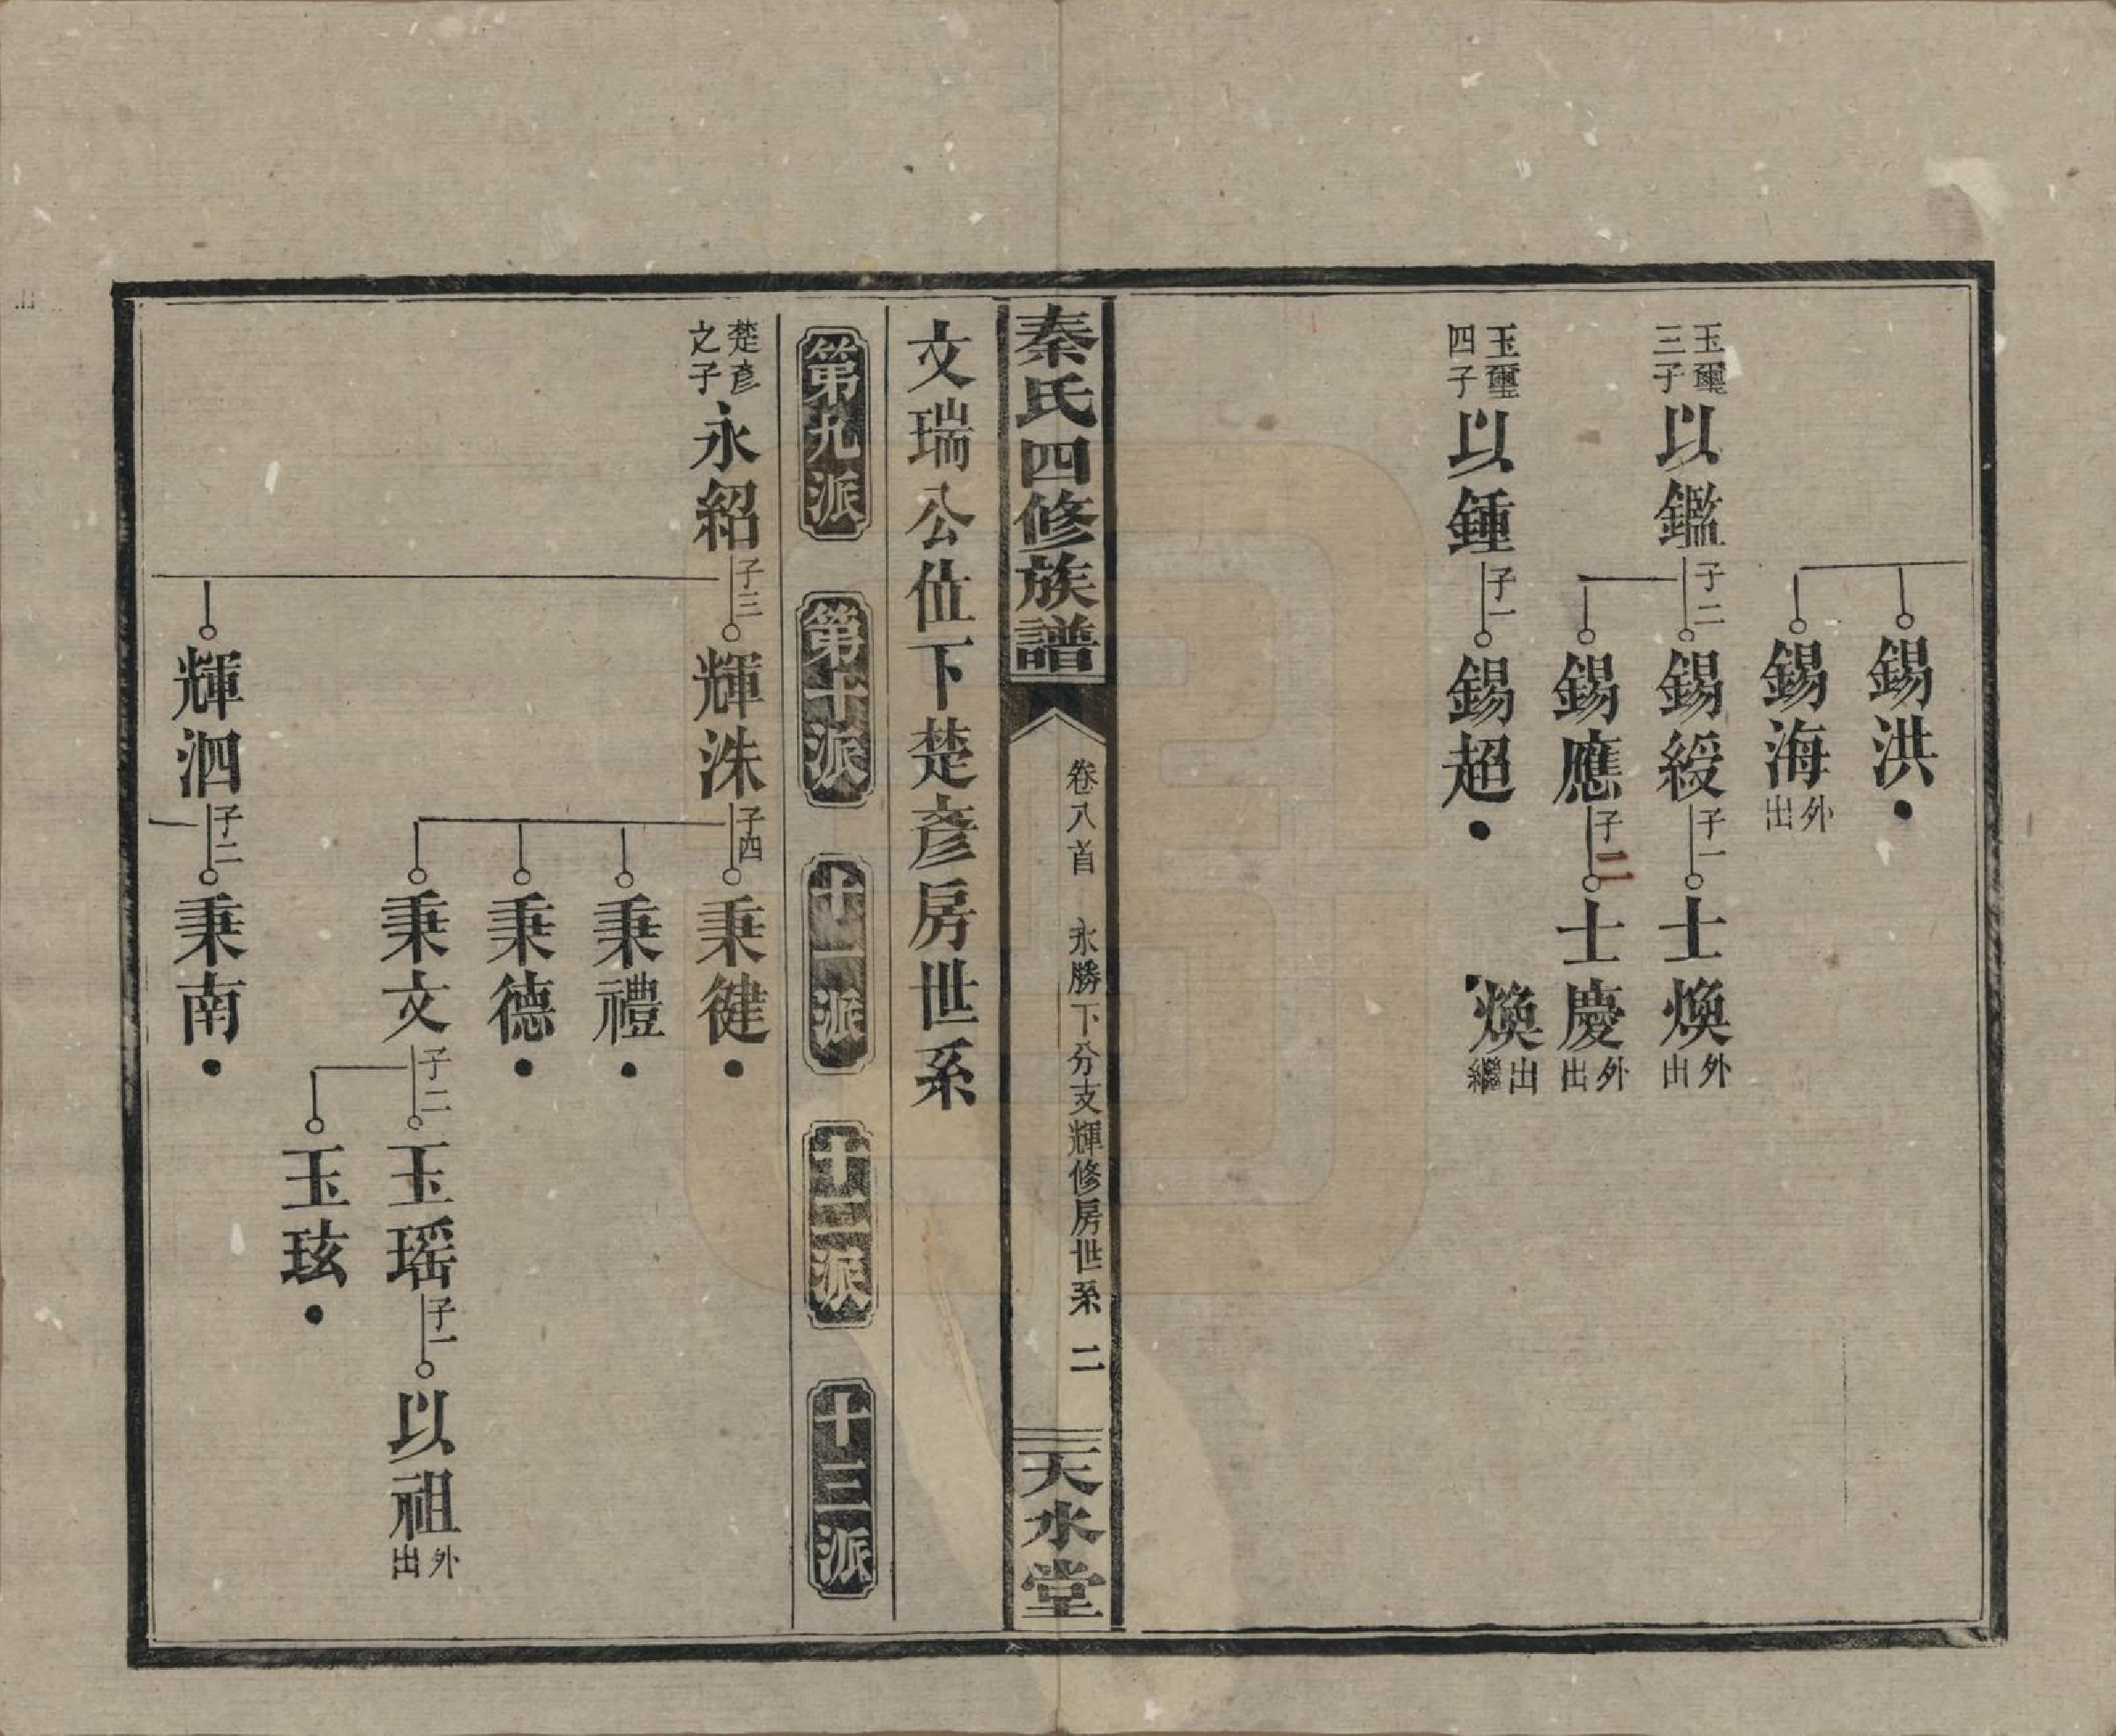 錫洪
錫海外出
玉璽三子以鑑子二錫綬子一士煥外出
錫應子二士慶外出
煥出繼
玉璽四子以鍾子一錫超
秦氏四修族譜
卷八首 永勝下分支輝修房世系 二
天水堂
文瑞公位下楚彥房世系
第九派 第十派 十一派 十二派 十三派
楚彥之子永紹子三輝洙子四秉健
秉禮
秉德
秉文子二玉瑶子一以祖外出
玉玹
輝泗子二秉南